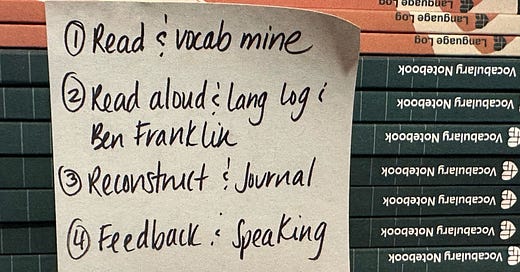 ① Read & vocab mine
② Read aloud & lang log &
Ben Franklin
③ Reconstruct & Journal
④ Feedback & Speaking
Language Log
Language Log
Language Log
Vocabulary Notebook
Vocabulary Notebook
Vocabulary Notebook
Vocabulary Notebook
Vocabulary Notebook
Vocabulary Notebook
Vocabulary Notebook